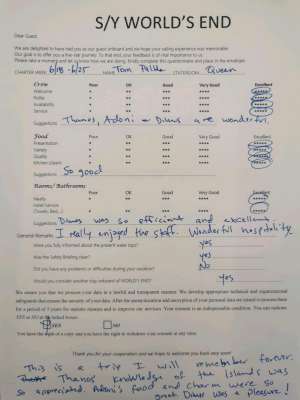 S/Y WORLD'S END
Dear Guest
We are delighted to have had you as our guest onboard and we hope your sailing experience was memorable.
Our goal is to offer you a five star journey. To that end, your feedback is of vital importance to us.
Please take a moment and let us know how we are doing, kindly complete this questionnaire and place in the envelope.
CHARTER WEEK 6/18 - 6/25 NAME Tom STATEROOM Queen
Crew Poor OK Good Very Good Excellent
Welcome * ** *** **** *****
Polite * ** *** **** *****
Availability * ** *** **** *****
Service * ** *** **** *****
Suggestions Thanos, Adoni & Dimos are wonderful.
Food Poor OK Good Very Good Excellent
Presentation * ** *** **** *****
Variety * ** *** **** *****
Quality * ** *** **** *****
Kitchen cleanli * ** *** **** *****
Suggestions So good
Rooms/ Bathrooms
Poor OK Good Very Good Excellent
Neatly * ** *** **** *****
Hotel Service
(Towels, Bed,..) * ** *** **** *****
Suggestions Dimos was so efficient and excellent.
General Remarks I really enjoyed the staff. Wonderful hospitality
Were you fully informed about the present water taps? yes
Was the Safety Briefing clear? yes
Did you have any problems or difficulties during your vacation? No
Would you consider another stay onboard of WORLD'S END? yes
We ensure you that we process your data in a lawful and transparent manner. We develop appropriate technical and organizational
safeguards that ensure the security of your data. After the anonymization and encryption of your personal data we intend to process them
for a period of 3 years for statistic reasons and to improve our services. Your consent is an indispensable condition. You can indicate
YES or NO at the linked boxes:
YES NO
You have the right of a copy and you have the right to withdraw your consent at any time.
Thank you for your cooperation and we hope to welcome you back very soon!
This is a trip I will remember forever.
Thanos' knowledge of the Islands was
so appreciated. Adoni's food and charm were so
great. Dimos was a pleasure!